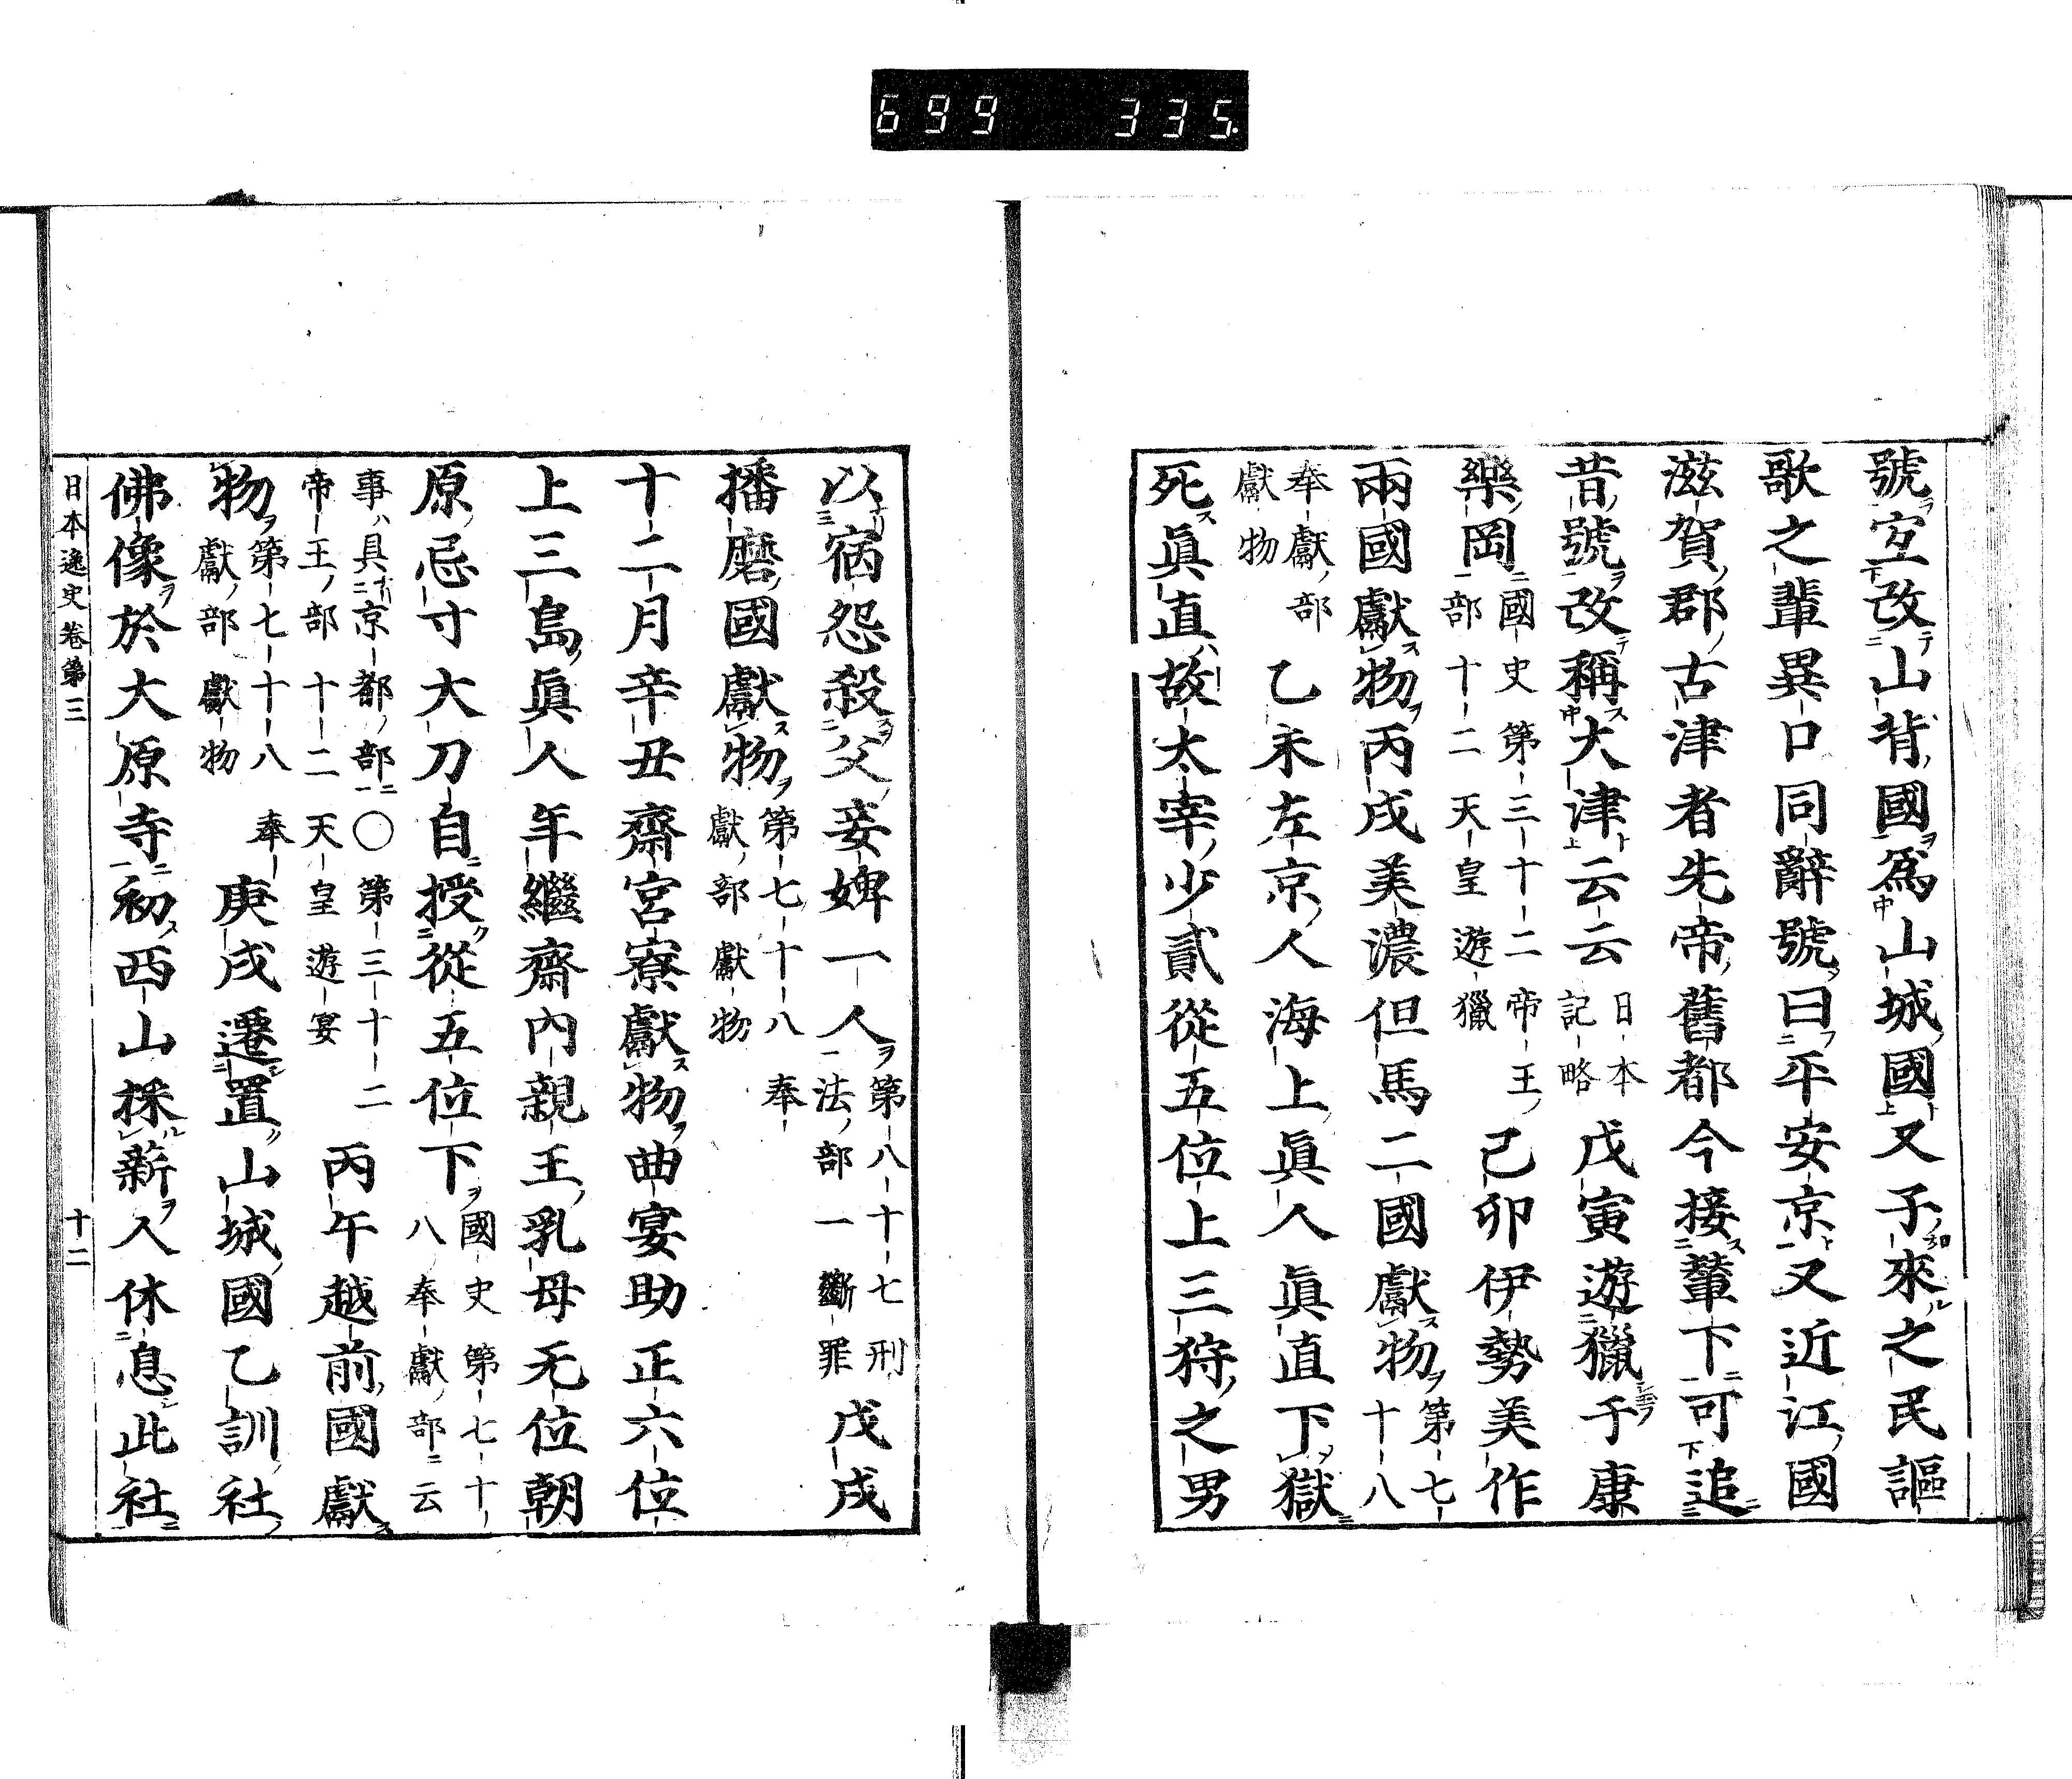 699 335
號宐改山背國爲山城國又子來之民謳
歌之輩異口同辭號曰平安京又近江國
滋賀郡古津者先帝舊都今接輦下可追
昔號改稱大津云云
日本
記略
戊寅遊獵于康
樂岡
國史第三十二帝王
部十二天皇遊獵
己卯伊勢美作
兩國獻物丙戌美濃但馬二國獻物
第七
十八
奉獻部
獻物
乙未左京人海上眞人眞直下獄
死眞直故太宰少貳從五位上三狩之男
以宿怨殺父妾婢一人
第八十七刑
法部一斷罪
戊戌
播磨國獻物
第七十八奉
獻部獻物
十二月辛丑齋宮寮獻物曲宴助正六位
上三島眞人年繼齋內親王乳母无位朝
原忌寸大刀自授從五位下
國史第七十
八奉獻部云
事具京都部〇第三十二
帝王部十二天皇遊宴
丙午越前國獻
物
第七十八奉
獻部獻物
庚戌遷置山城國乙訓社
佛像於大原寺初西山採薪人休息此社
日本逸史卷第三
十二